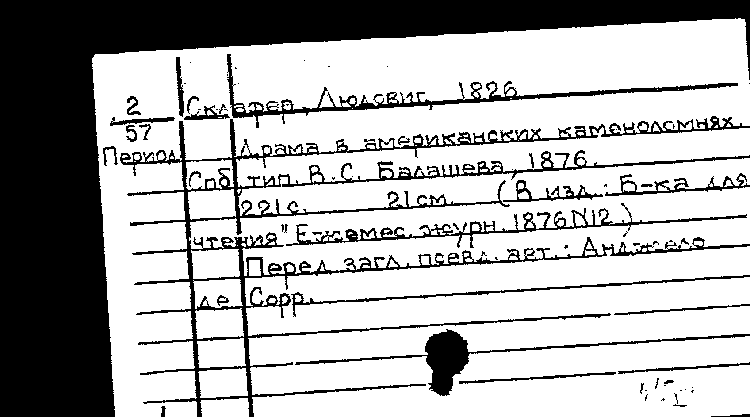 2
57
Период
Склафер, Людовиг, 1826
Драма в американских каменоломнях.
Спб, тип. В.С. Балашева, 1876.
221с. 21см. (В изд.: Б-ка для
чтения" Ежемес. журн. 1876 N12).
Перед загл. псевд. авт.: Анджело
де Сорр.